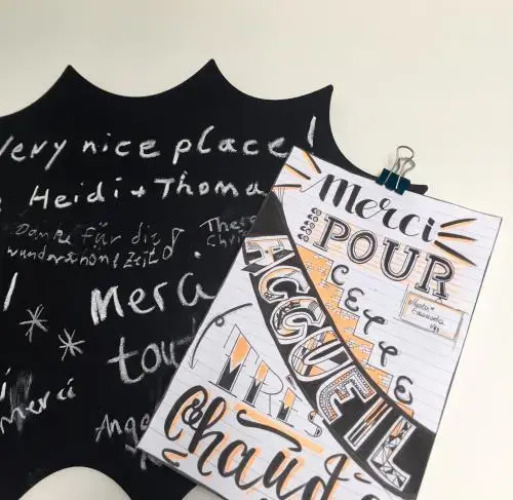 Very nice place!
Heidi + Thoma
Danke für die
wunderschöne Zeit!
Merc
tou
merci
Ange
Merci
POUR
CETTE
ACCUEIL
TRÈS
Chaud